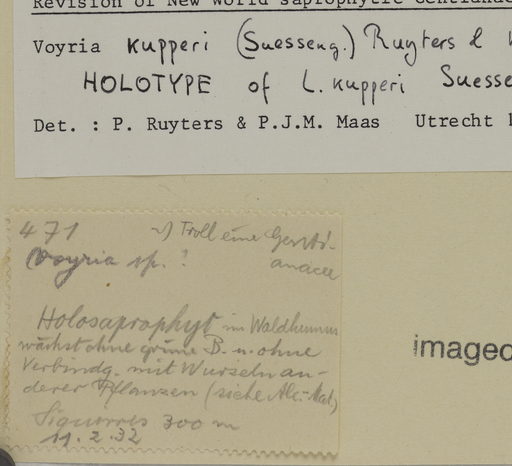 Revision of New World saprophytic Gentianac
Voyria Kupperi (Suesseng.) Ruyters &
HOLOTYPE of L. Kupperi Suesse
Det. : P. Ruyters & P.J.M. Maas Utrecht
471 Troll eine Genti-
Voyria sp. ? anacee
Holosaprophyt im Waldhumus
wächst ohne grüne B. u. ohne
Verbindg. mit Wurzeln an-
derer Pflanzen (siehe Alc.-Mat)
Siquirres 300 m
11.2.32
imaged